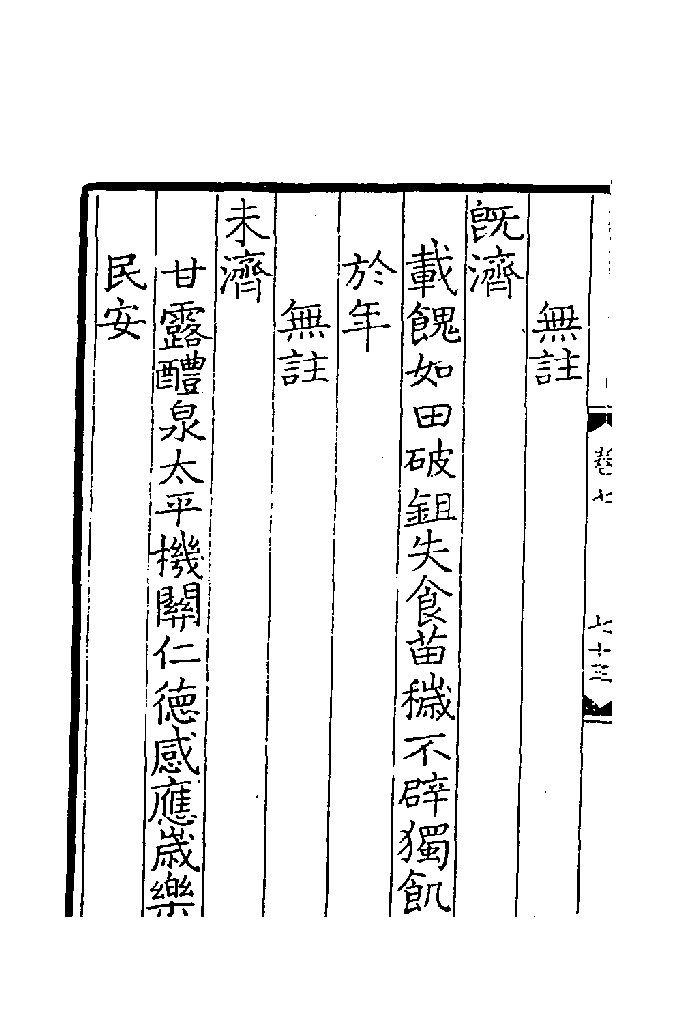 無註
既濟
載餽如田破鉏失食苗穢不辟獨飢
於年
無註
未濟
甘露醴泉太平機關仁德感應歲樂
民安
七十三